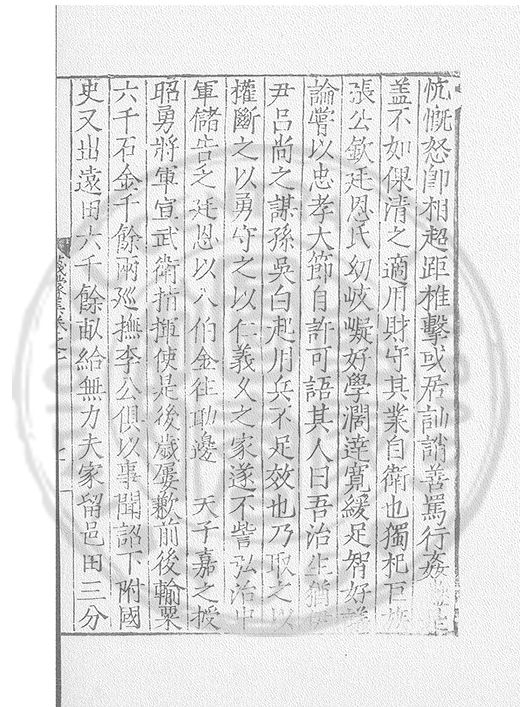 忼慨怒卽相超距椎擊或居訕誚善罵行姦
盖不如倮清之適用財守其業自衛也獨杞巨族
張公欽廷恩氏幼岐嶷好學濶達寬緩足智好議
論嘗以忠孝大節自許可語其人曰吾治生猶伊
尹吕尚之謀孫吳白起用兵不足效也乃取之以
權斷之以勇守之以仁義乂之家遂不訾弘治中
軍儲告乏廷恩以八伯金往助邊 天子嘉之授
昭勇將軍宣武衛指揮使是後歲屢歉前後輸粟
六千石金千餘兩廵撫李公俱以事聞詔下附國
史又出遠田六千餘畝給無力夫家留邑田三分